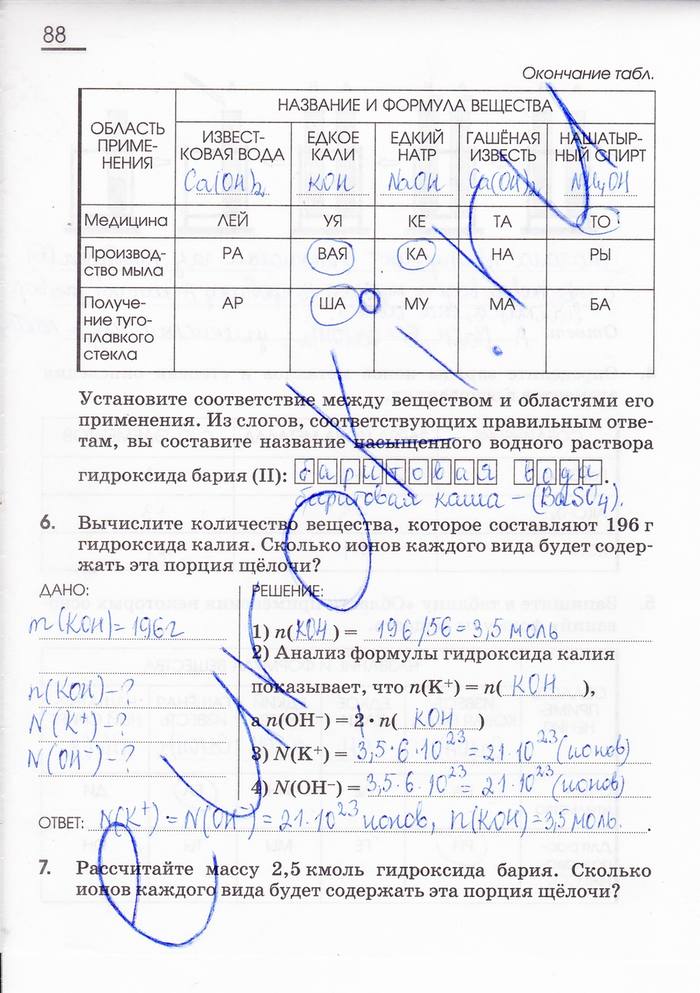 88
Окончание табл.
ОБЛАСТЬ ПРИМЕ-НЕНИЯ
НАЗВАНИЕ И ФОРМУЛА ВЕЩЕСТВА
ИЗВЕСТ-КОВАЯ ВОДА ЕДКОЕ КАЛИ ЕДКИЙ НАТР ГАШЁНАЯ ИЗВЕСТЬ НАШАТЫР-НЫЙ СПИРТ
Ca(OH)₂ KOH NaOH Ca(OH)₂ NH₄OH
Медицина ЛЕЙ УЯ КЕ ТА ТО
Производ-ство мыла РА ВАЯ КА НА РЫ
Получе-ние туго-плавкого стекла АР ША МУ МА БА
Установите соответствие между веществом и областями его
применения. Из слогов, соответствующих правильным отве-
там, вы составите название насыщенного водного раствора
гидроксида бария (II): баритовая вода.
баритовая каша – (BaSO₄).
6. Вычислите количество вещества, которое составляют 196 г
гидроксида калия. Сколько ионов каждого вида будет содер-
жать эта порция щёлочи?
ДАНО:
m(KOH) = 196 г
n(KOH) – ?
N(K⁺) – ?
N(OH⁻) – ?
РЕШЕНИЕ:
1) n(KOH) = 196/56 = 3,5 моль
2) Анализ формулы гидроксида калия
показывает, что n(K⁺) = n(KOH),
а n(OH⁻) = 1 · n(KOH)
3) N(K⁺) = 3,5·6·10²³ = 21·10²³ (ионов)
4) N(OH⁻) = 3,5·6·10²³ = 21·10²³ (ионов)
ОТВЕТ: N(K⁺) = N(OH⁻) = 21·10²³ ионов, n(KOH) = 3,5 моль.
7. Рассчитайте массу 2,5 кмоль гидроксида бария. Сколько
ионов каждого вида будет содержать эта порция щёлочи?